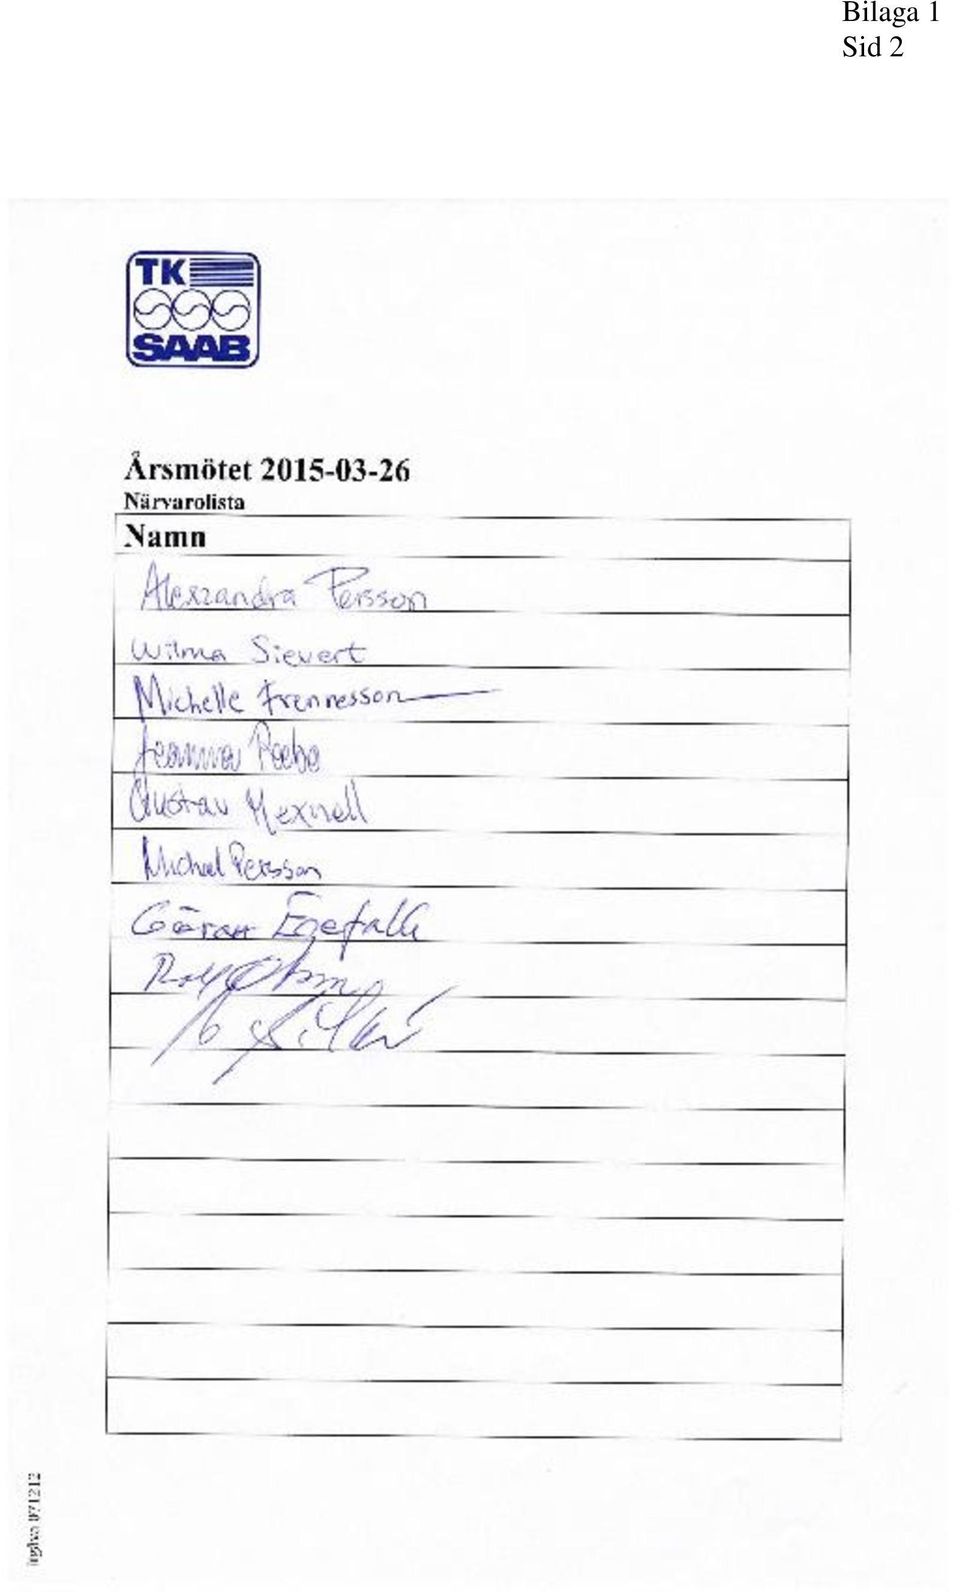 Bilaga 1
Sid 2
TK
SAAB
Årsmötet 2015-03-26
Närvarolista
Namn
Alexzandra Persson
Wilma Sievert
Michelle Frennesson
Jeanna
Gustav Mexnell
Michael Persson
Göran Egefalk
Rolf
071212